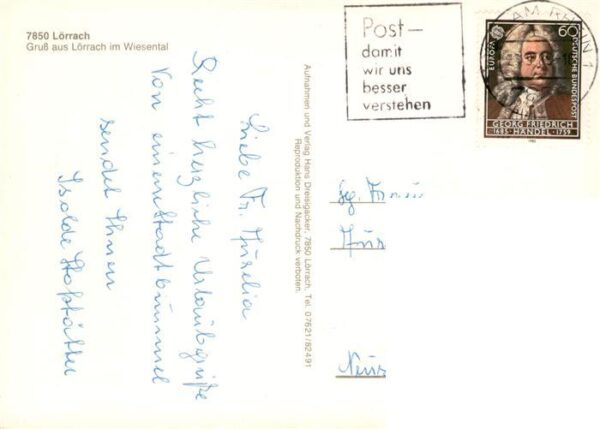 7850 Lörrach
Gruß aus Lörrach im Wiesental
Liebe Fr.
Recht herzliche Urlaubsgrüße
von einem Stadtbummel
sendet Ihnen
Isolde
Aufnahmen und Verlag Hans Dreisigacker, 7850 Lörrach, Tel. 07621/82491
Reproduktion und Nachdruck verboten
Post—
damit
wir uns
besser
verstehen
AM RHEIN 1
60
EUROPA
DEUTSCHE BUNDESPOST
GEORG FRIEDRICH
1685 · HÄNDEL · 1759